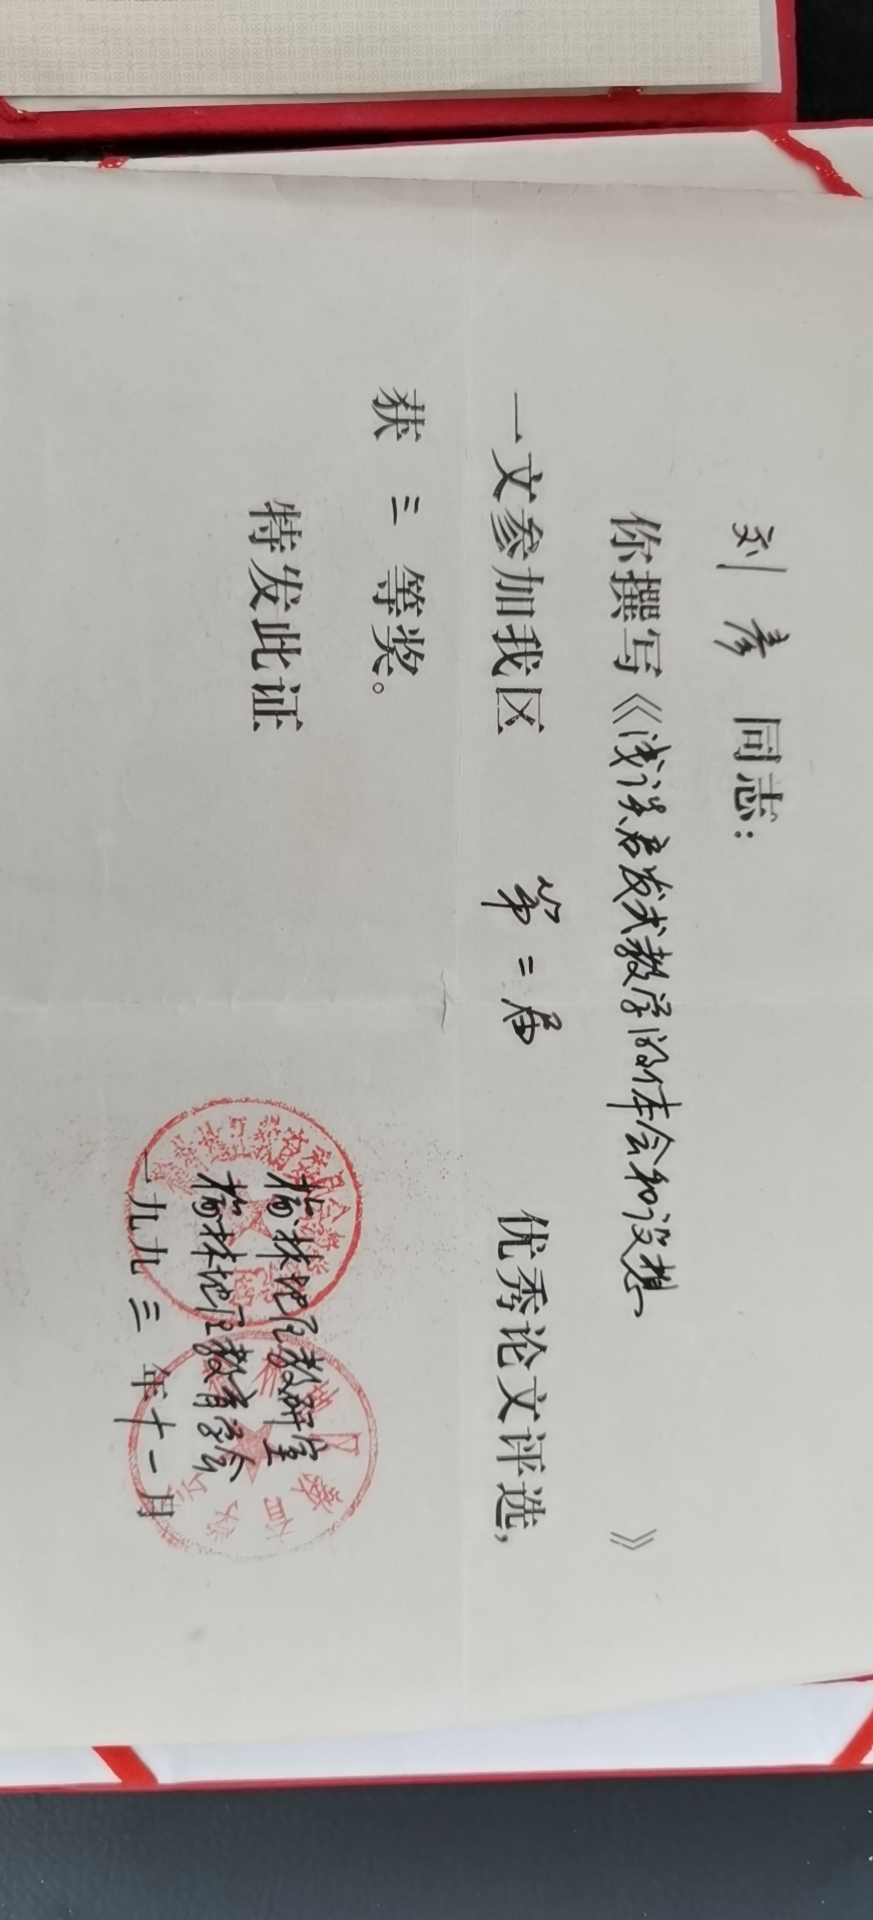 刘彦 同志：
你撰写《浅谈启发式教学的体会和设想》
一文参加我区 第二届 优秀论文评选，
获 三 等奖。
特发此证
榆林地区教研室
榆林地区教育学会
一九九三年十一月